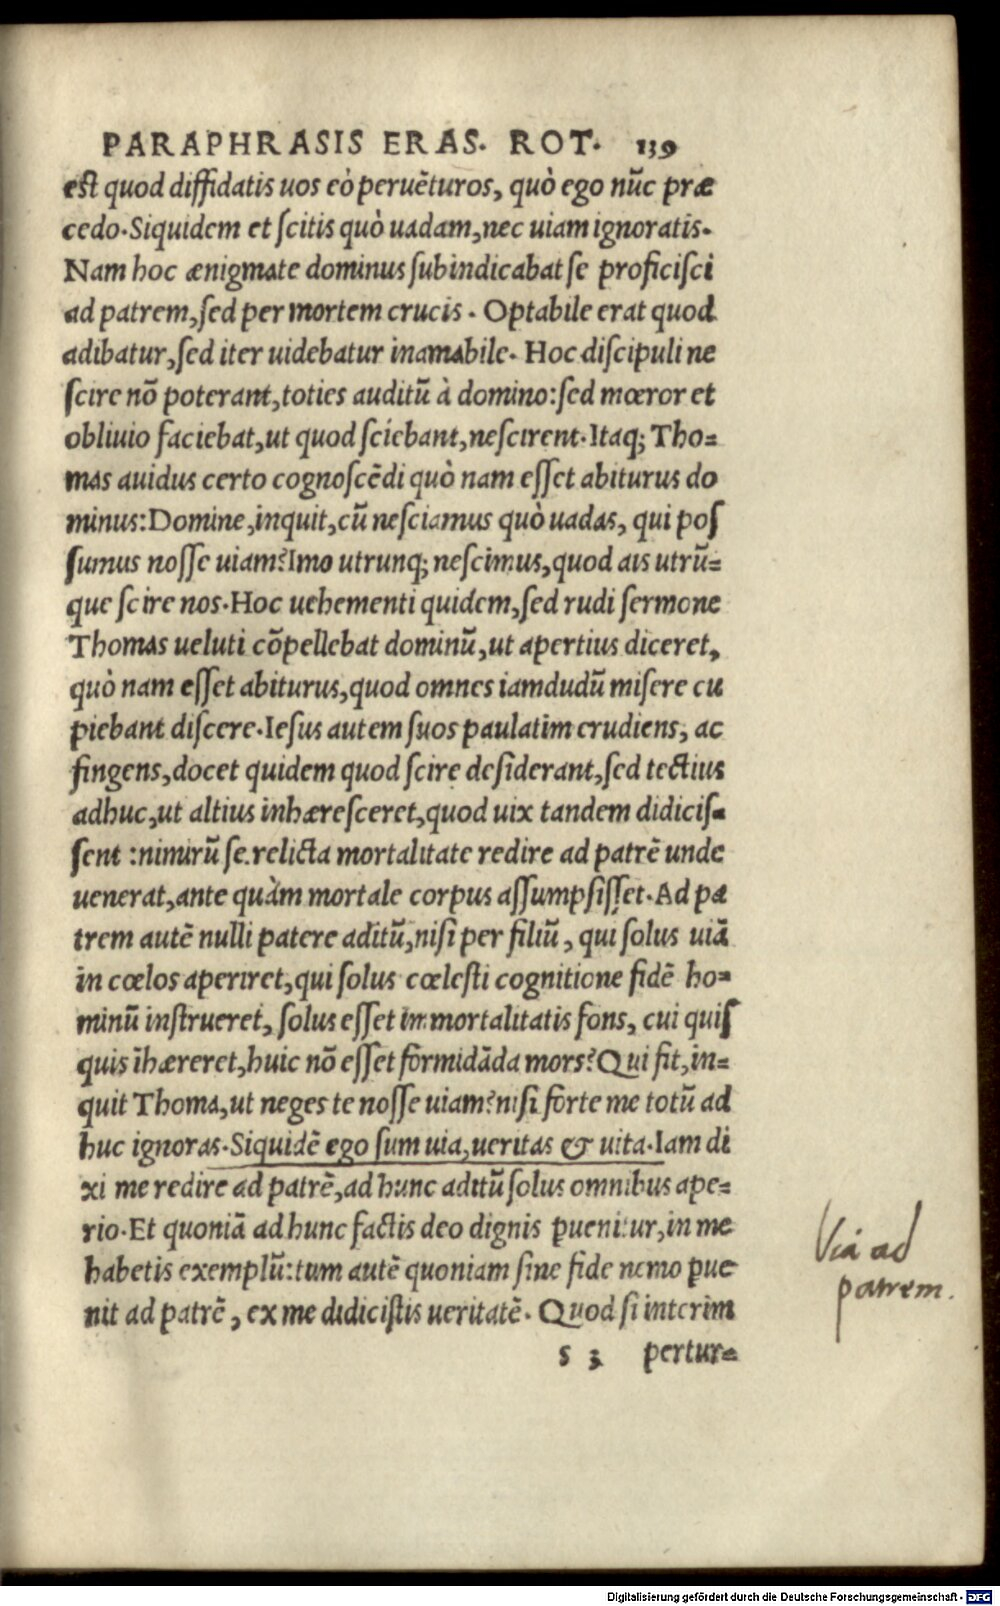 PARAPHRASIS ERAS. ROT. 139
est quod diffidatis uos eò peruẽturos, quò ego nũc præ
cedo. Siquidem et scitis quò uadam, nec uiam ignoratis.
Nam hoc ænigmate dominus subindicabat se proficisci
ad patrem, sed per mortem crucis. Optabile erat quod
adibatur, sed iter uidebatur inamabile. Hoc discipuli ne
scire nõ poterant, toties auditũ à domino: sed mœror et
obliuio faciebat, ut quod sciebant, nescirent. Itaq; Tho=
mas auidus certo cognoscẽdi quò nam esset abiturus do
minus: Domine, inquit, cũ nesciamus quò uadas, qui pos
sumus nosse uiam? Imo utrunq; nescimus, quod ais utrũ=
que scire nos. Hoc uehementi quidem, sed rudi sermone
Thomas ueluti cõpellebat dominũ, ut apertius diceret,
quò nam esset abiturus, quod omnes iamdudũ misere cu
piebant discere. Iesus autem suos paulatim erudiens, ac
fingens, docet quidem quod scire desiderant, sed tectius
adhuc, ut altius inhæresceret, quod uix tandem didicis=
sent: nimirũ se relicta mortalitate redire ad patrẽ unde
uenerat, ante quàm mortale corpus assumpsisset. Ad pa
trem autẽ nulli patere aditũ, nisi per filiũ, qui solus uiã
in cœlos aperiret, qui solus cœlesti cognitione fidẽ ho=
minũ instrueret, solus esset immortalitatis fons, cui quis
quis ĩhæreret, huic nõ esset formidãda mors? Qui fit, in=
quit Thoma, ut neges te nosse uiam? nisi forte me totũ ad
huc ignoras. Siquidẽ ego sum uia, ueritas & uita. Iam di
xi me redire ad patrẽ, ad hunc aditũ solus omnibus ape=
rio. Et quoniã ad hunc factis deo dignis ꝑuenitur, in me
habetis exemplũ: tum autẽ quoniam sine fide nemo ꝑue
nit ad patrẽ, ex me didicistis ueritatẽ. Quod si interim
s 3 pertur=
Via ad
patrem.
Digitalisierung gefördert durch die Deutsche Forschungsgemeinschaft - DFG